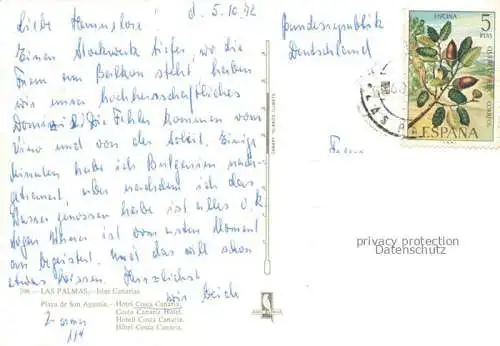 Liebe Hannelore!
d. 5.10.72
Einen Stockwerk tiefer, wo die
Frau am Balkon steht, haben
wir unser hochherrschaftliches
Domizil. Die Fehler kommen vom
Vino und von der Zeit. Einige
Minuten habe ich Bulgarien nach-
getrauert, aber nachdem ich das
Wasser genossen habe ist alles o.k.
ist vom ersten Moment
an begeistert. Und das will schon
etwas heissen. Herzlichst
wir Euch
LAS PALMAS.- Islas Canarias
Playa de San Agustín.- Hotel Costa Canaria.
Costa Canaria Hotel.
Hotell Costa Canaria.
Hôtel Costa Canaria.
2 Zimmer
114
Bundesrepublik
Deutschland
ENCINA
5
PTAS
CORREOS
ESPAÑA
LAS P
Frau
privacy protection
Datenschutz